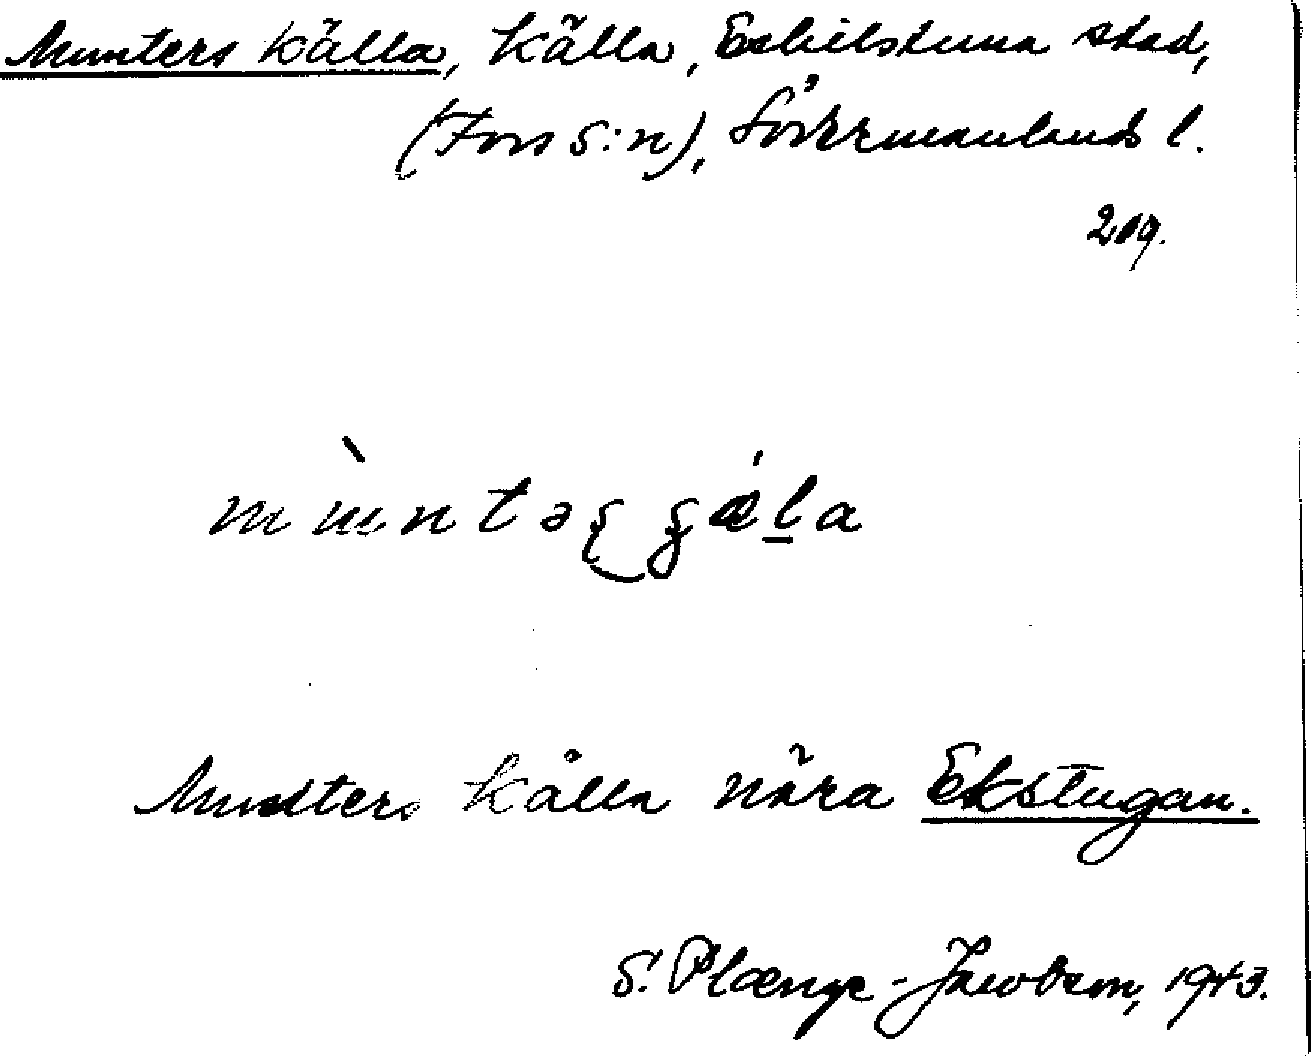 Munters källa, källa, Eskilstuna stad,
(Fors s:n), Södermanlands l.
209.
Munters källa nära Ekstugan.
S. Plænge-Jacobson, 1943.